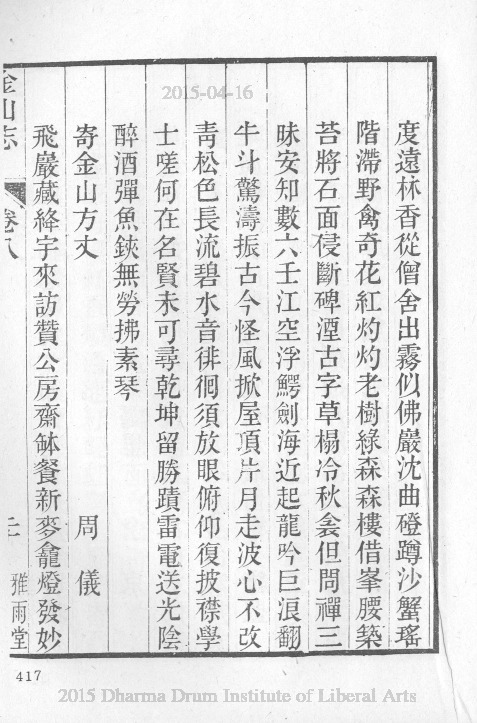 2015-04-16
度遠林香從僧舍出霧似佛巖沈曲磴蹲沙蟹瑤
階滯野禽奇花紅灼灼老樹綠森森樓借峯腰築
苔將石面侵斷碑湮古字草榻冷秋衾但問禪三
昧安知數六壬江空浮鰐劍海近起龍吟巨浪翻
牛斗驚濤振古今怪風掀屋頂片月走波心不改
靑松色長流碧水音徘徊須放眼俯仰復披襟學
士嗟何在名賢未可尋乾坤留勝蹟雷電送光陰
醉酒彈魚鋏無勞拂素琴
寄金山方丈
周儀
飛巖藏絳宇來訪贊公房齋缽餐新麥龕燈發妙
金山志
卷八
雅雨堂
417
2015 Dharma Drum Institute of Liberal Arts